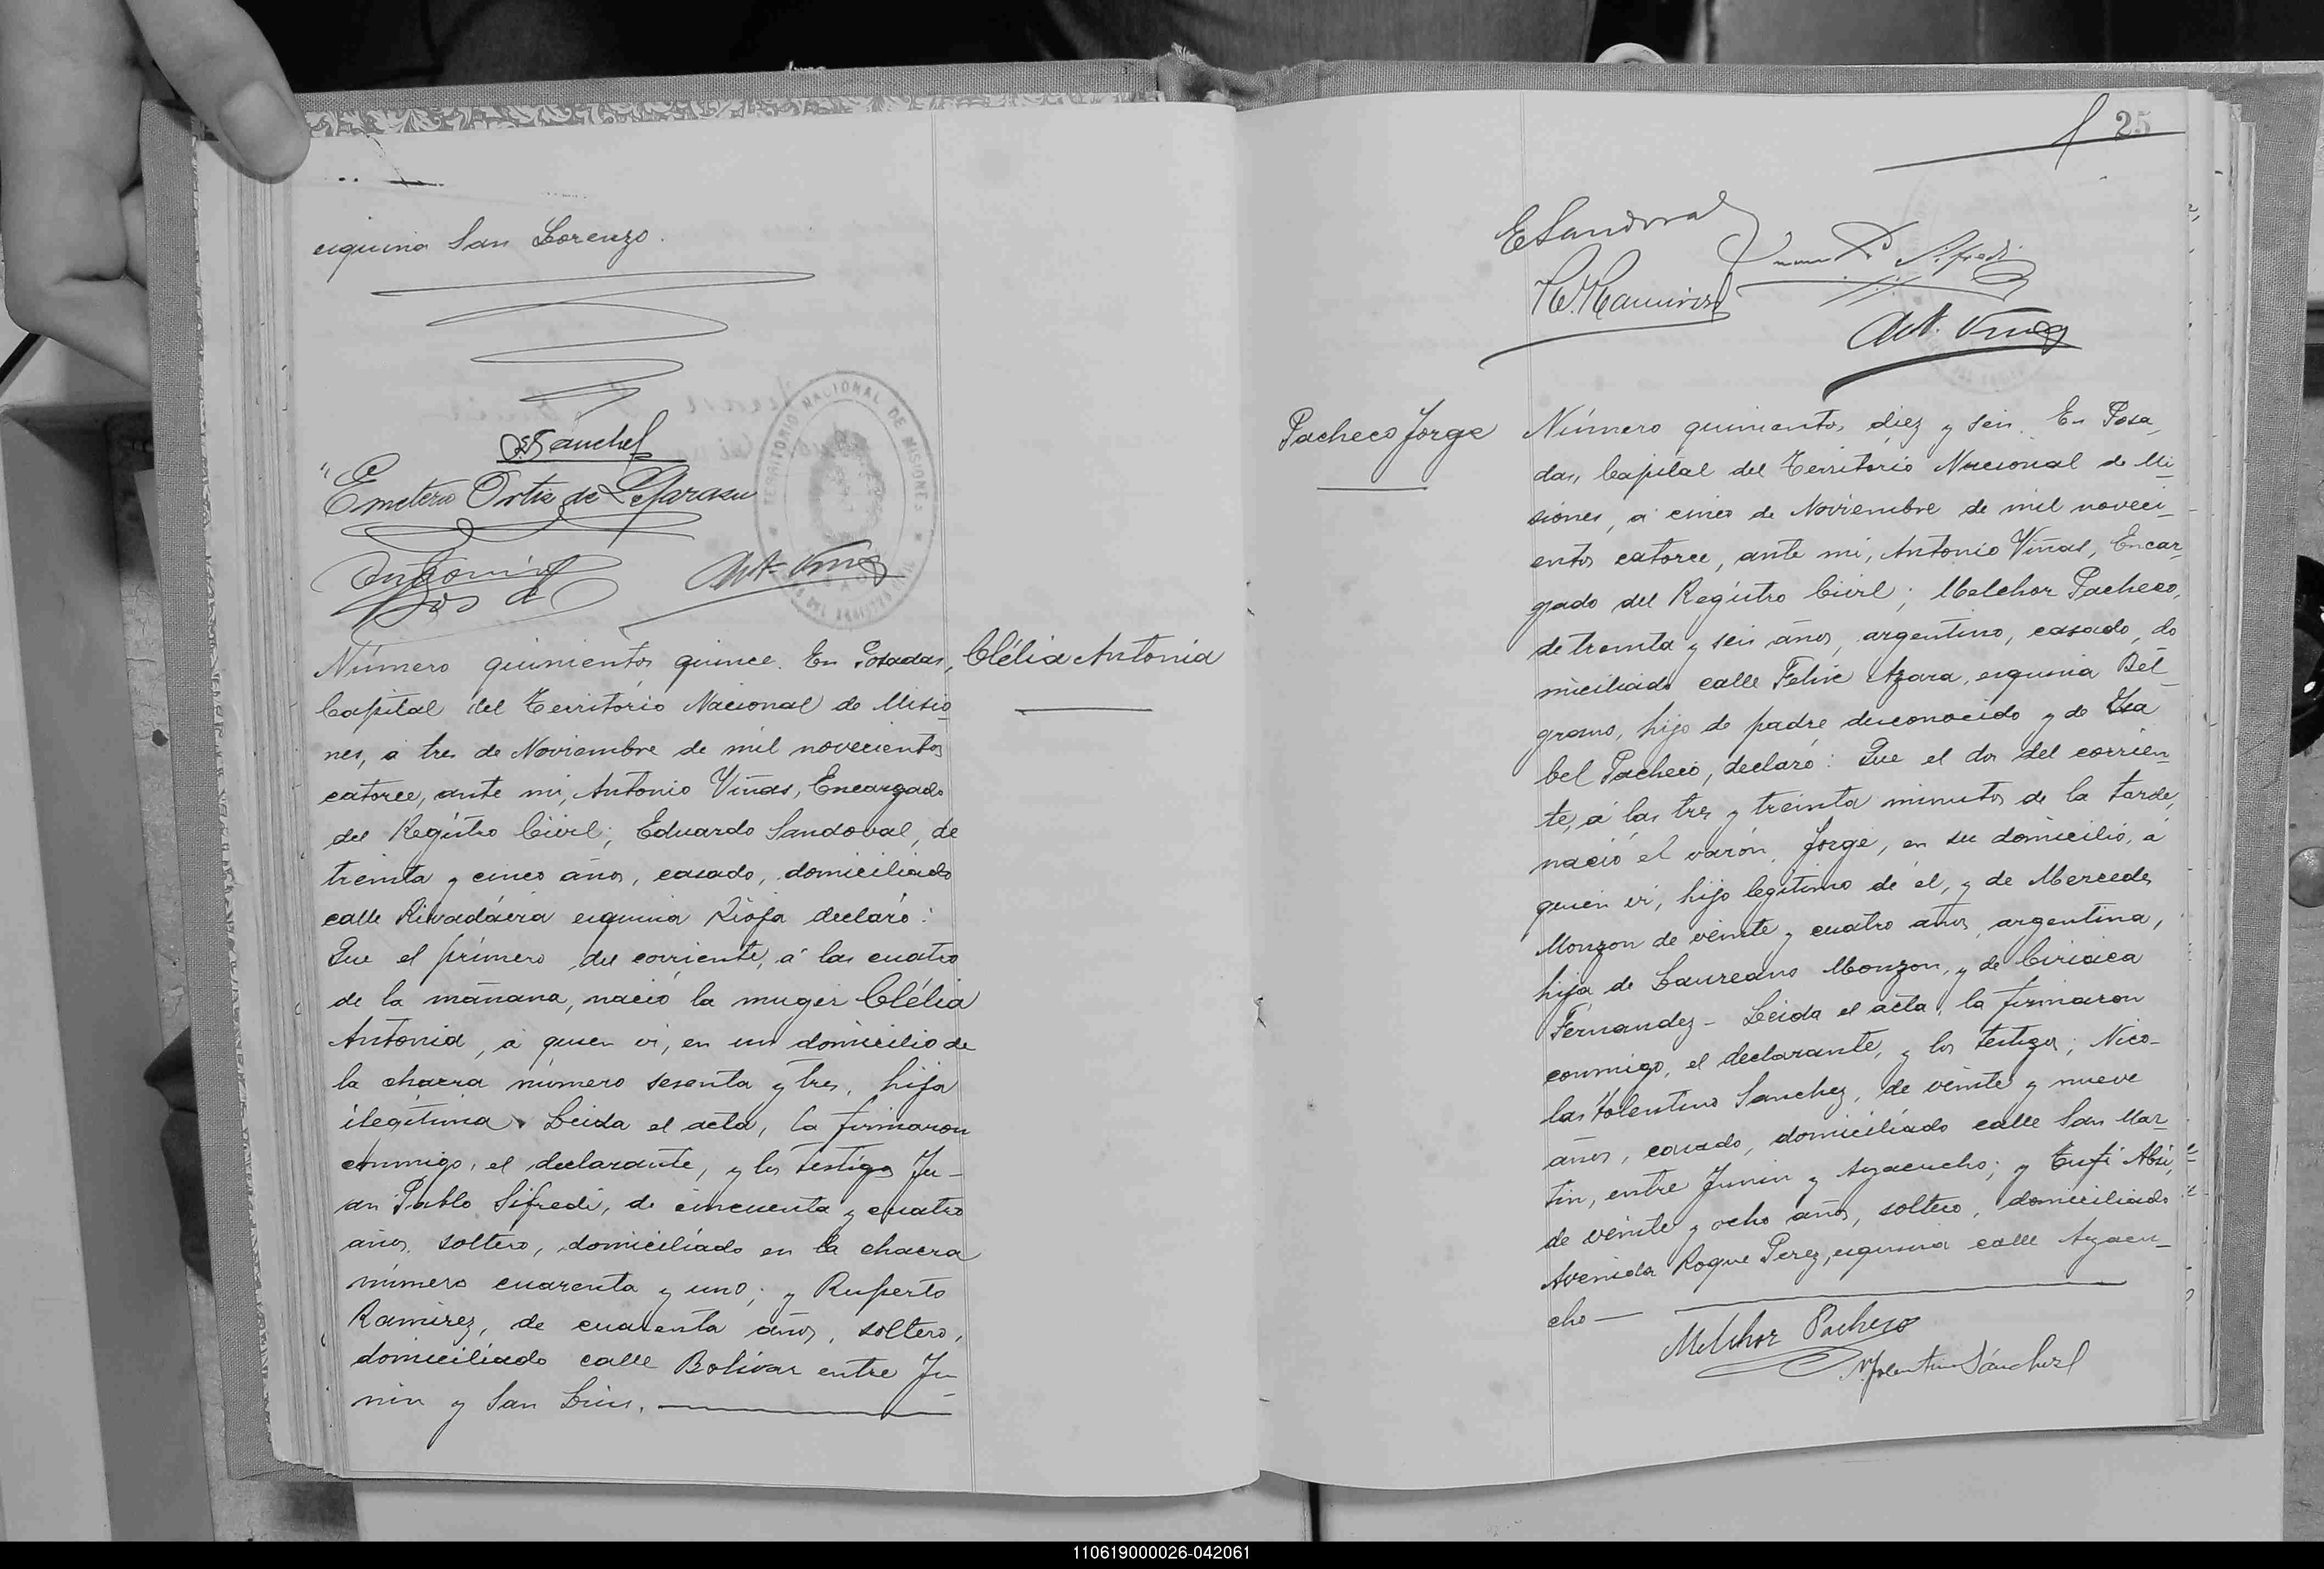 esquina San Lorenzo.
Sanchez
Emeterio Ortiz de
Ant. Viñas
TERRITORIO NACIONAL DE MISIONES
Número quinientos quince. En Posadas,
Clélia Antonia
Capital del Territorio Nacional de Misio-
nes, a tres de Noviembre de mil novecientos
catorce, ante mi, Antonio Viñas, Encargado
del Registro Civil; Eduardo Sandoval, de
treinta y cinco años, casado, domiciliado
calle Rivadávia esquina Rioja declaró:
Que el primero del corriente, á las cuatro
de la mañana, nació la muger Clélia
Antonia, a quien vi, en un domicilio de
la chacra número sesenta y tres, hija
ilegítima. Leida el acta, la firmaron
conmigo, el declarante, y los testigos Ju-
an Pablo Sifredi, de cincuenta y cuatro
años, soltero, domiciliado en la chacra
número cuarenta y uno; y Ruperto
Ramirez, de cuarenta años, soltero,
domiciliado calle Bolivar entre Ju-
nin y San Luis.
25
E Sandoval
Sifredi
R. Ramirez
Ant. Viñas
Pacheco Jorge
Número quinientos diez y seis. En Posa-
das, Capital del Territorio Nacional de Mi-
siones, a cinco de Noviembre de mil noveci-
entos catorce, ante mi, Antonio Viñas, Encar-
gado del Registro Civil; Melchor Pacheco,
de treinta y seis años, argentino, casado, do
miciliado calle Felix Azara, esquina Bel-
grano, hijo de padre desconocido y de Isa
bel Pacheco, declaró: Que el dos del corrien-
te, á las tres y treinta minutos de la tarde,
nació el varón, Jorge, en su domicilio, a
quien vi, hijo legitimo de él, y de Mercedes
Monzon de veinte y cuatro años, argentina,
hija de Laureano Monzon, y de Ciriaca
Fernandez - Leida el acta, la firmaron
conmigo, el declarante, y los testigos; Nico-
las Tolentino Sanchez, de veinte y nueve
años, casado, domiciliado calle San Mar-
tin, entre Junin y Ayacucho; y Tufi Absi,
de veinte y ocho años, soltero, domiciliado
Avenida Roque Perez, esquina calle Ayacu-
cho —
Melchor Pacheco
N. Tolentino Sánchez
110619000026-042061